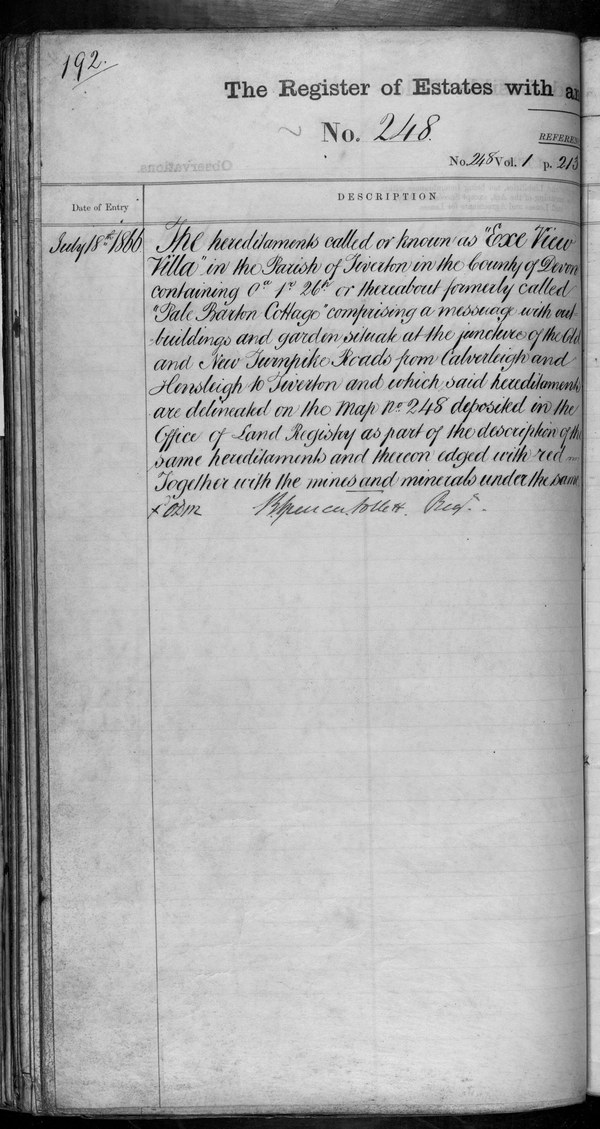 192.
The Register of Estates with an
No. 248.
REFEREN
No. 248 Vol. 1 p. 213
Observations.
Date of Entry
DESCRIPTION
July 18th 1866
The hereditaments called or known as "Exe View
Villa" in the Parish of Tiverton in the County of Devon
containing 0a 1r 26p or thereabout formerly called
"Pale Barton Cottage" comprising a messuage with out
buildings and garden situate at the juncture of the Old
and New Turnpike Roads from Calverleigh and
Hensleigh to Tiverton and which said hereditaments
are delineated on the Map No. 248 deposited in the
Office of Land Registry as part of the description of the
same hereditaments and thereon edged with red
Together with the mines and minerals under the same
Spencer Follett. Regr.